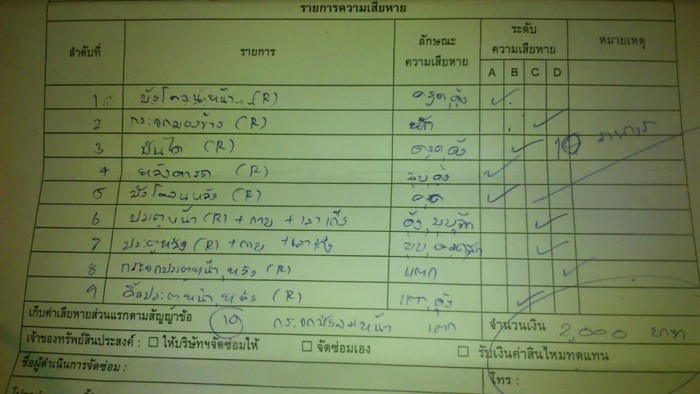 รายการความเสียหาย
ลำดับที่ รายการ ลักษณะความเสียหาย ระดับความเสียหาย หมายเหตุ
A B C D
1 บังโคลนหน้า (R)
2 กระจกมองข้าง (R) หัก
3 บันได (R) 10 รายการ
4 หลังคารถ (R)
5 บังโคลนหลัง (R) ครูด
6 ประตูหน้า (R) + กาบ + เสาเก๋ง
7 ประตูหลัง (R) + กาบ + เสาเก๋ง
8 กระจกประตูหน้า, หลัง (R) แตก
9 คิ้วประตูหน้า, หลัง (R)
เก็บค่าเสียหายส่วนแรกตามสัญญาข้อ 10 กระจกบังลมหน้า แตก จำนวนเงิน 2,000 บาท
เจ้าของทรัพย์สินประสงค์ : ☐ ให้บริษัทฯจัดซ่อมให้ ☐ จัดซ่อมเอง ☐ รับเงินค่าสินไหมทดแทน
ชื่อผู้ดำเนินการจัดซ่อม : โทร :